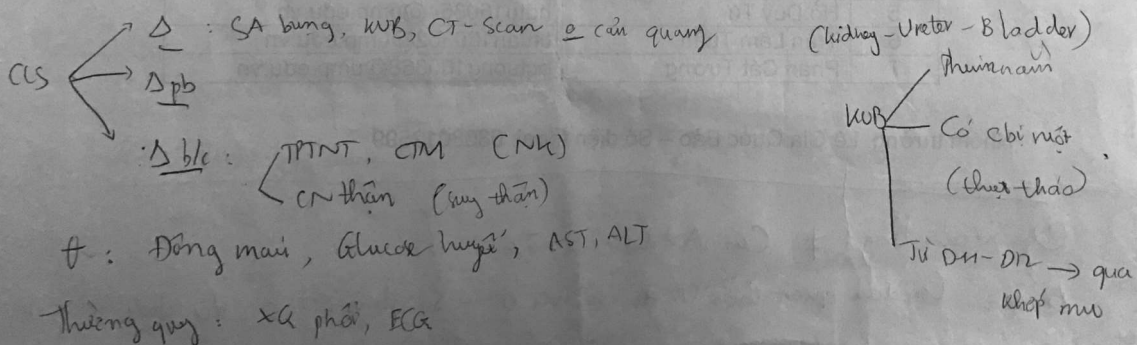 CLS
Δ : SA bụng, KUB, CT-Scan o cản quang
Δ pb
Δ b/c : TPTNT, CTM (NK)
CN thận (suy thận)
t : Đông máu, Glucose huyết, AST, ALT
Thường quy : XQ phổi, ECG
(Kidney-Ureter-Bladder)
KUB
Phim nằm
Có cbị ruột
(thụt tháo)
Từ D11-D12 → qua
khớp mu